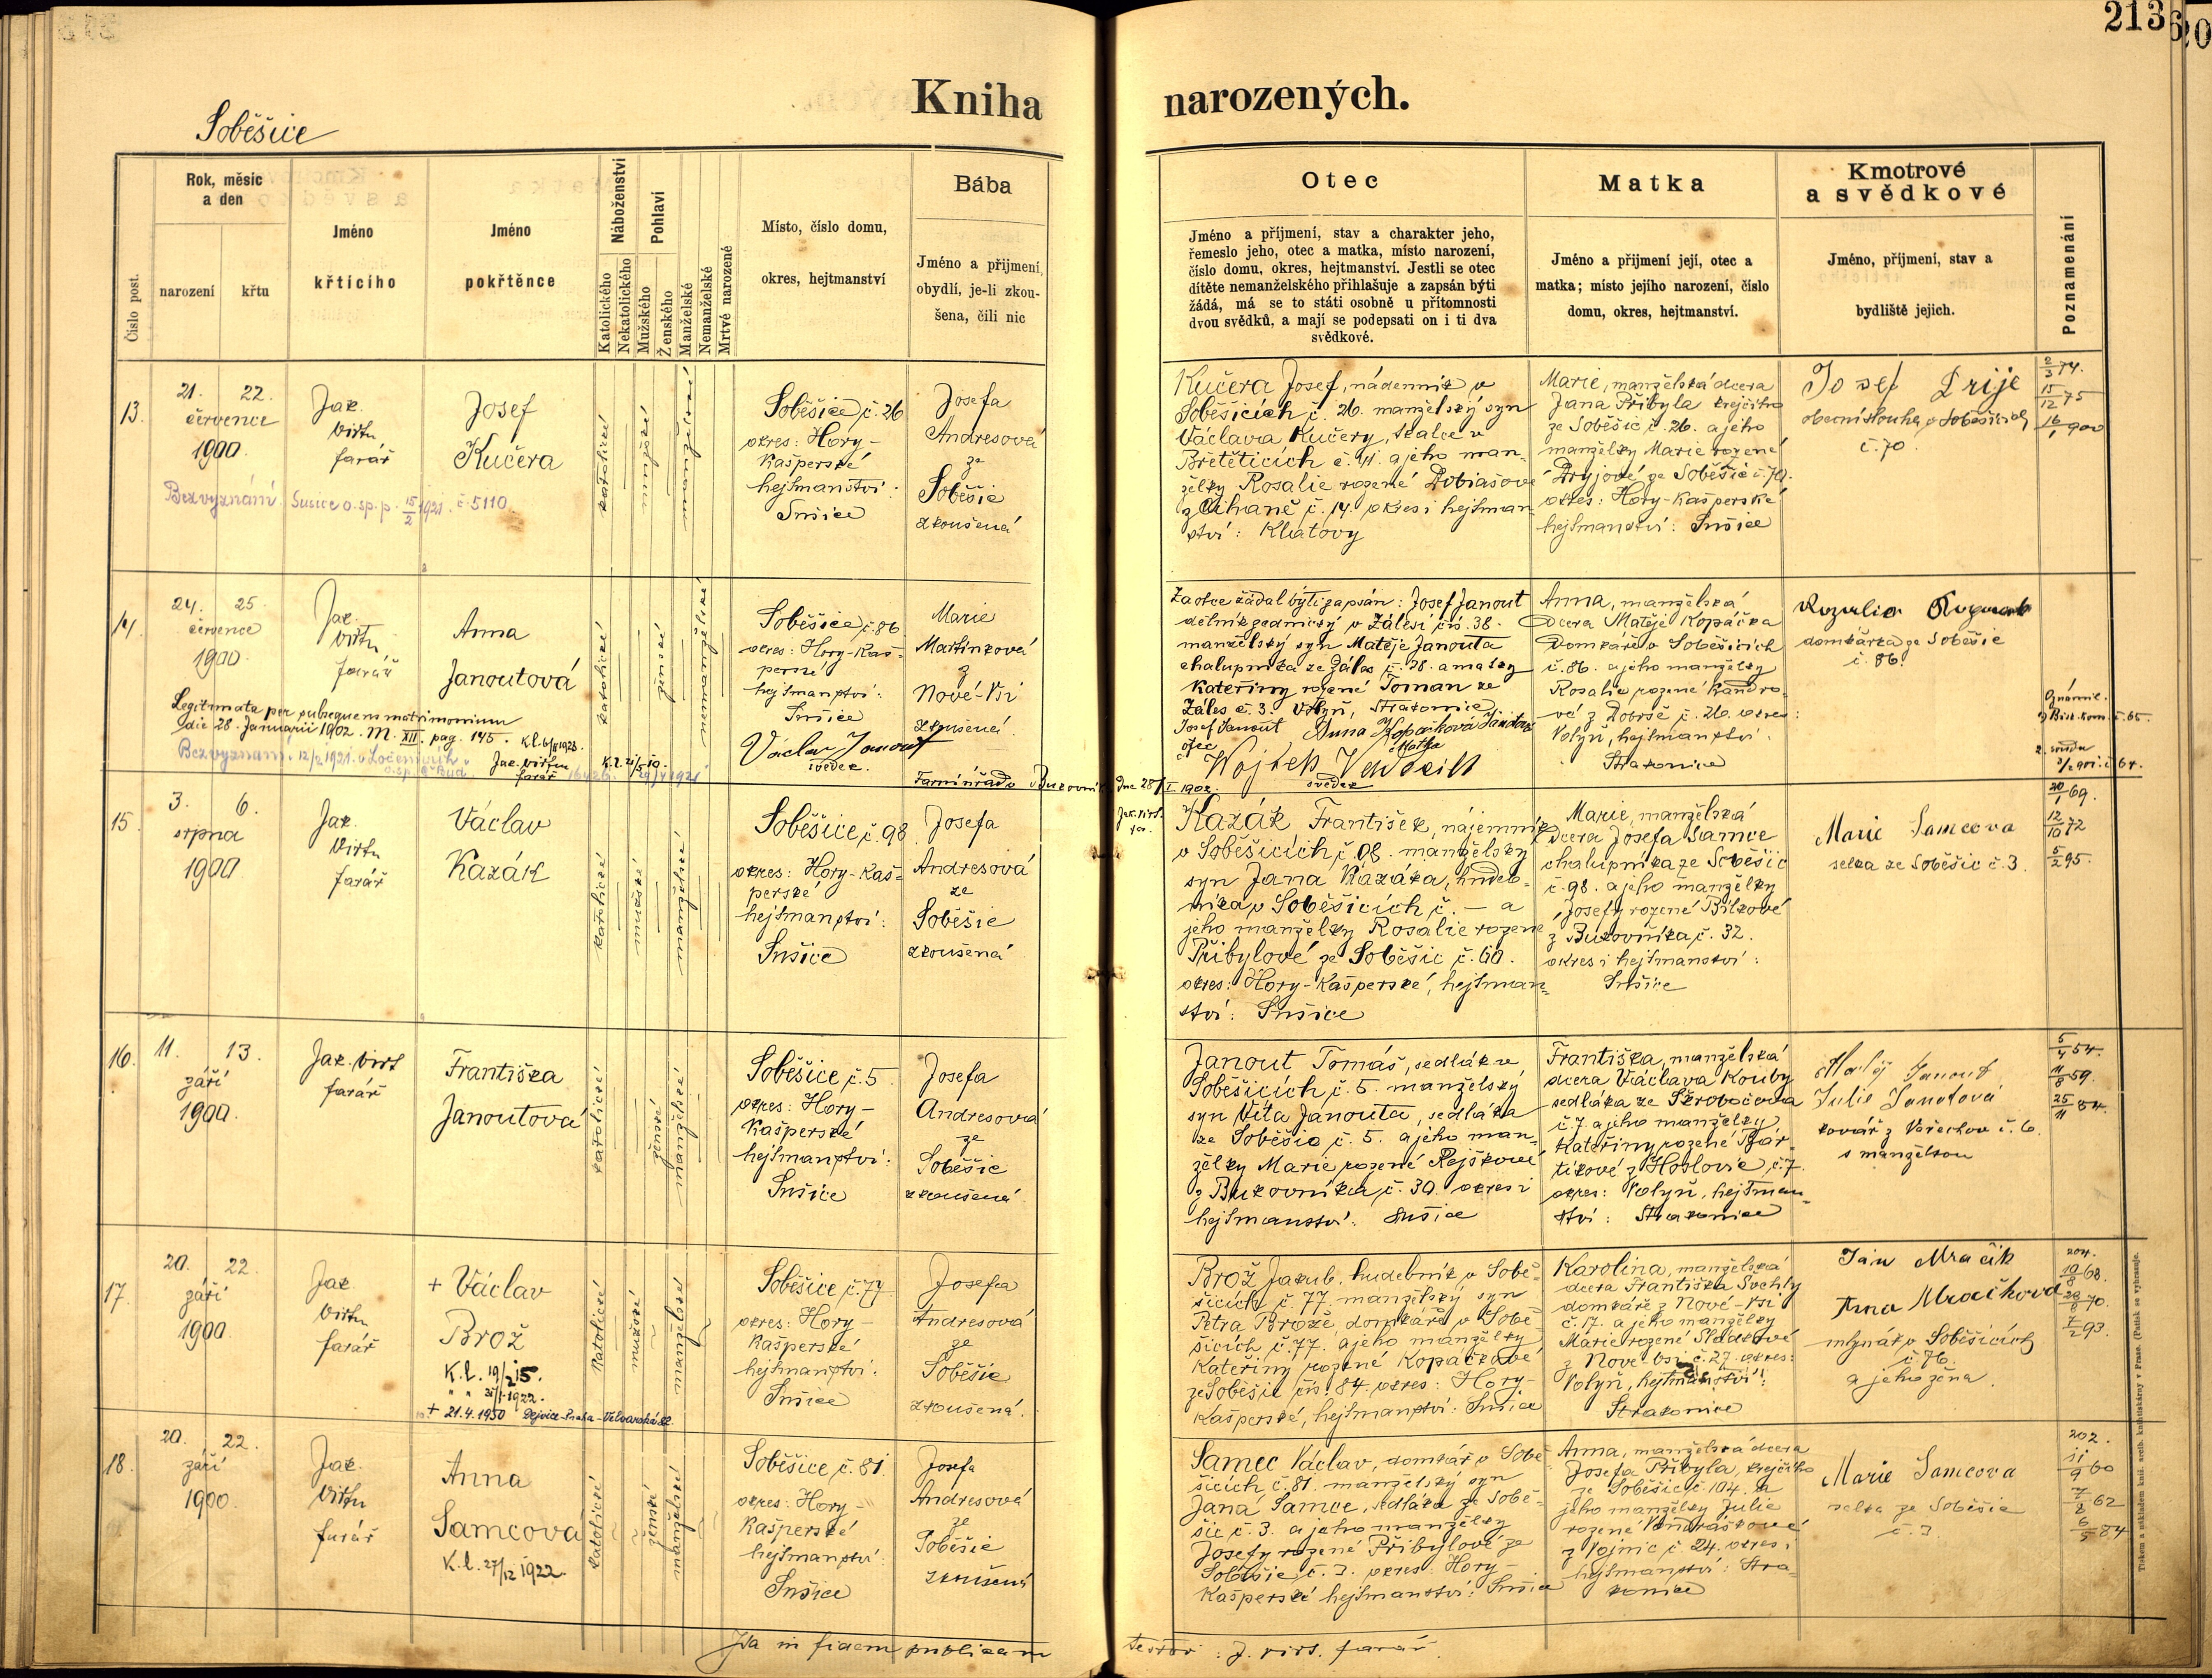 213
Kniha narozených.
Soběšice
Číslo post.
Rok, měsíc
a den
narození
křtu
Jméno
křtícího
Jméno
pokřtěnce
Náboženství
Katolického
Nekatolického
Pohlaví
Mužského
Ženského
Manželské
Nemanželské
Mrtvé narozené
Místo, číslo domu,
okres, hejtmanství
Bába
Jméno a přijmení,
obydlí, je-li zkou-
šena, čili nic
Otec
Jméno a příjmení, stav a charakter jeho,
řemeslo jeho, otec a matka, místo narození,
číslo domu, okres, hejtmanství. Jestli se otec
dítěte nemanželského přihlašuje a zapsán býti
žádá, má se to státi osobně u přítomnosti
dvou svědků, a mají se podepsati on i ti dva
svědkové.
Matka
Jméno a přijmení její, otec a
matka; místo jejího narození, číslo
domu, okres, hejtmanství.
Kmotrové
a svědkové
Jméno, příjmení, stav a
bydliště jejich.
Poznamenání
13.
21. 22.
července
1900.
Jak.
Virtu
farář
Josef
Kučera
Bez vyznání. Sušice o. sp. p. 15/2 1921. č 5110.
katolické
mužské
manželské
Soběšice č. 26
okres: Hory-
Kašperské
hejtmanství:
Sušice
Josefa
Andresová
ze
Soběšic
zkoušená
Kučera Josef, nádenník v
Soběšicích č. 26. manželský syn
Václava Kučery, tkalce v
Břetěticích č. 41. a jeho man-
želky Rosalie rozené Dobiášové
z Čihaně č. 14. okres i hejtman-
ství: Klatovy
Marie, manželská dcera
Jana Přibyla krejčího
ze Soběšic č. 26. a jeho
manželky Marie rozené
Dryjové ze Soběšic č. 70.
okres: Hory-Kašperské
hejtmanství: Sušice
Josef Drije
obecní sluha v Soběšicích
č. 70.
2/3 74.
15/12 75
16/1 900
14.
24. 25.
července
1900.
Jak.
Virtu
farář
Anna
Janoutová
Legitimata per subsequens matrimonium
die 28. Januarii 1902. M. XII. pag. 145.
Jak. Virtu
farář
katolické
ženské
nemanželské
Soběšice č. 86
okres: Hory-Kaš-
perské
hejtmanství:
Sušice
Václav Janout
svědek.
Marie
Martínková
z
Nové-Vsi
zkoušená.
Za otce žádal býti zapsán: Josef Janout
dělník zednický v Zálesí čís. 38.
manželský syn Matěje Janouta
chalupníka ze Záles č. 38. a matky
Kateřiny rozené Toman ze
Záles č. 3. Volyň, Strakonice
Josef Janout
otec
Anna Kopačková Janotová
Matka
svědek
Farní úřad v Bukovníku Dne 28/I. 1902.
Anna, manželská
dcera Matěje Kopáčka
Domkáře v Soběšicích
č. 86. a jeho manželky
Rosalie rozené Kandro-
vé z Dobrše č. 26. okres:
Volyň, hejtmanství:
Strakonice
domkářka ze Soběšic
č. 86.
15.
3. 6.
srpna
1900
Jak.
Virtu
farář
Václav
Kazák
katolické
mužské
manželské
Soběšice č. 98
okres: Hory-Kaš-
perské
hejtmanství:
Sušice
Josefa
Andresová
ze
Soběšic
zkoušená
Kazák František, nájemník
v Soběšicích č. 98. manželský
syn Jana Kazáka, hudeb-
níka v Soběšicích č. — a
jeho manželky Rosalie rozené
Přibylové ze Soběšic č. 60.
okres: Hory-Kašperské, hejtman-
ství: Sušice
Marie, manželská
dcera Josefa Samce
chalupníka ze Soběšic
č. 98. a jeho manželky
Josefy rozené Bílkové
z Bukovníka č. 32.
okres i hejtmanství:
Sušice
Marie Samcova
selka ze Soběšic č. 3.
20/1 69.
12/10 72
5/2 95.
16.
11. 13.
září
1900.
Jak. Virt
farář
Františka
Janoutová
katolické
ženské
manželské
Soběšice č. 5
okres: Hory-
Kašperské
hejtmanství:
Sušice
Josefa
Andresová
ze
Soběšic
zkoušená
Janout Tomáš, sedlák v
Soběšicích č. 5. manželský
syn Víta Janouta, sedláka
ze Soběšic č. 5. a jeho man-
želky Marie rozené Rejškové
z Bukovníka č. 30. okres i
hejtmanství: Sušice
Františka, manželská
dcera Václava Kouby
sedláka ze Škrobočova
č. 7. a jeho manželky
Kateřiny rozené Bár-
tíkové z Hoslovic č. 7.
okres: Volyň, hejtman-
ství: Strakonice
Matěj Janout
Julie Janotová
kovář z Vořechov č. 6.
s manželkou
5/4 54.
11/8 59.
25/11 84.
17.
20. 22.
září
1900.
Jak.
Virtu
farář
+ Václav
Brož
K.l. 19/2 15.
" " 31/1 1922.
+ 21.4.1950 Dejvice-Praha-Velvarská 82.
katolické
mužské
manželské
Soběšice č. 77
okres: Hory-
Kašperské
hejtmanství:
Sušice
Josefa
Andresová
ze
Soběšic
zkoušená.
Brož Jakub, hudebník v Sobě-
šicích č. 77. manželský syn
Petra Brože, domkáře v Sobě-
šicích č. 77. a jeho manželky
Kateřiny rozené Kopáčkové
ze Soběšic čís. 84. okres: Hory-
Kašperské, hejtmanství: Sušice
Karolina, manželská
dcera Františka Švehly
domkáře z Nové-Vsi
č. 17. a jeho manželky
Marie rozené Sladkové
z Nové Vsi č. 27. okres:
Volyň, hejtmanství:
Strakonice
Jan Mračik
Anna Mračkova
mlynář v Soběšicích
č. 76.
a jeho žena.
204.
19/8 68.
28/8 70.
7/2 93.
18.
20. 22.
září
1900.
Jak.
Virtu
farář
Anna
Samcová
K.l. 27/12 1922.
katolické
ženské
manželské
Soběšice č. 81.
okres: Hory-
Kašperské
hejtmanství:
Sušice
Josefa
Andresová
ze
Soběšic
zkoušená
Samec Václav, domkář v Sobě-
šicích č. 81. manželský syn
Jana Samce, sedláka ze Sobě-
šic č. 3. a jeho manželky
Josefy rozené Přibylové ze
Soběšic č. 3. okres: Hory-
Kašperské hejtmanství: Sušice
Anna, manželská dcera
Josefa Přibyla, krejčího
ze Soběšic č. 104. a
jeho manželky Julie
rozené Vondráškové
z Vojnic č. 24. okres i
hejtmanství: Stra-
konice
Marie Samcova
selka ze Soběšic
č. 3.
202.
11/9 60
7/2 62
6/5 84
Ita in fidem publicam testor: J. Virt. farář.
Tiskem a nákladem kníž. arcib. knihtiskárny v Praze. (Patisk se vyhrazuje.